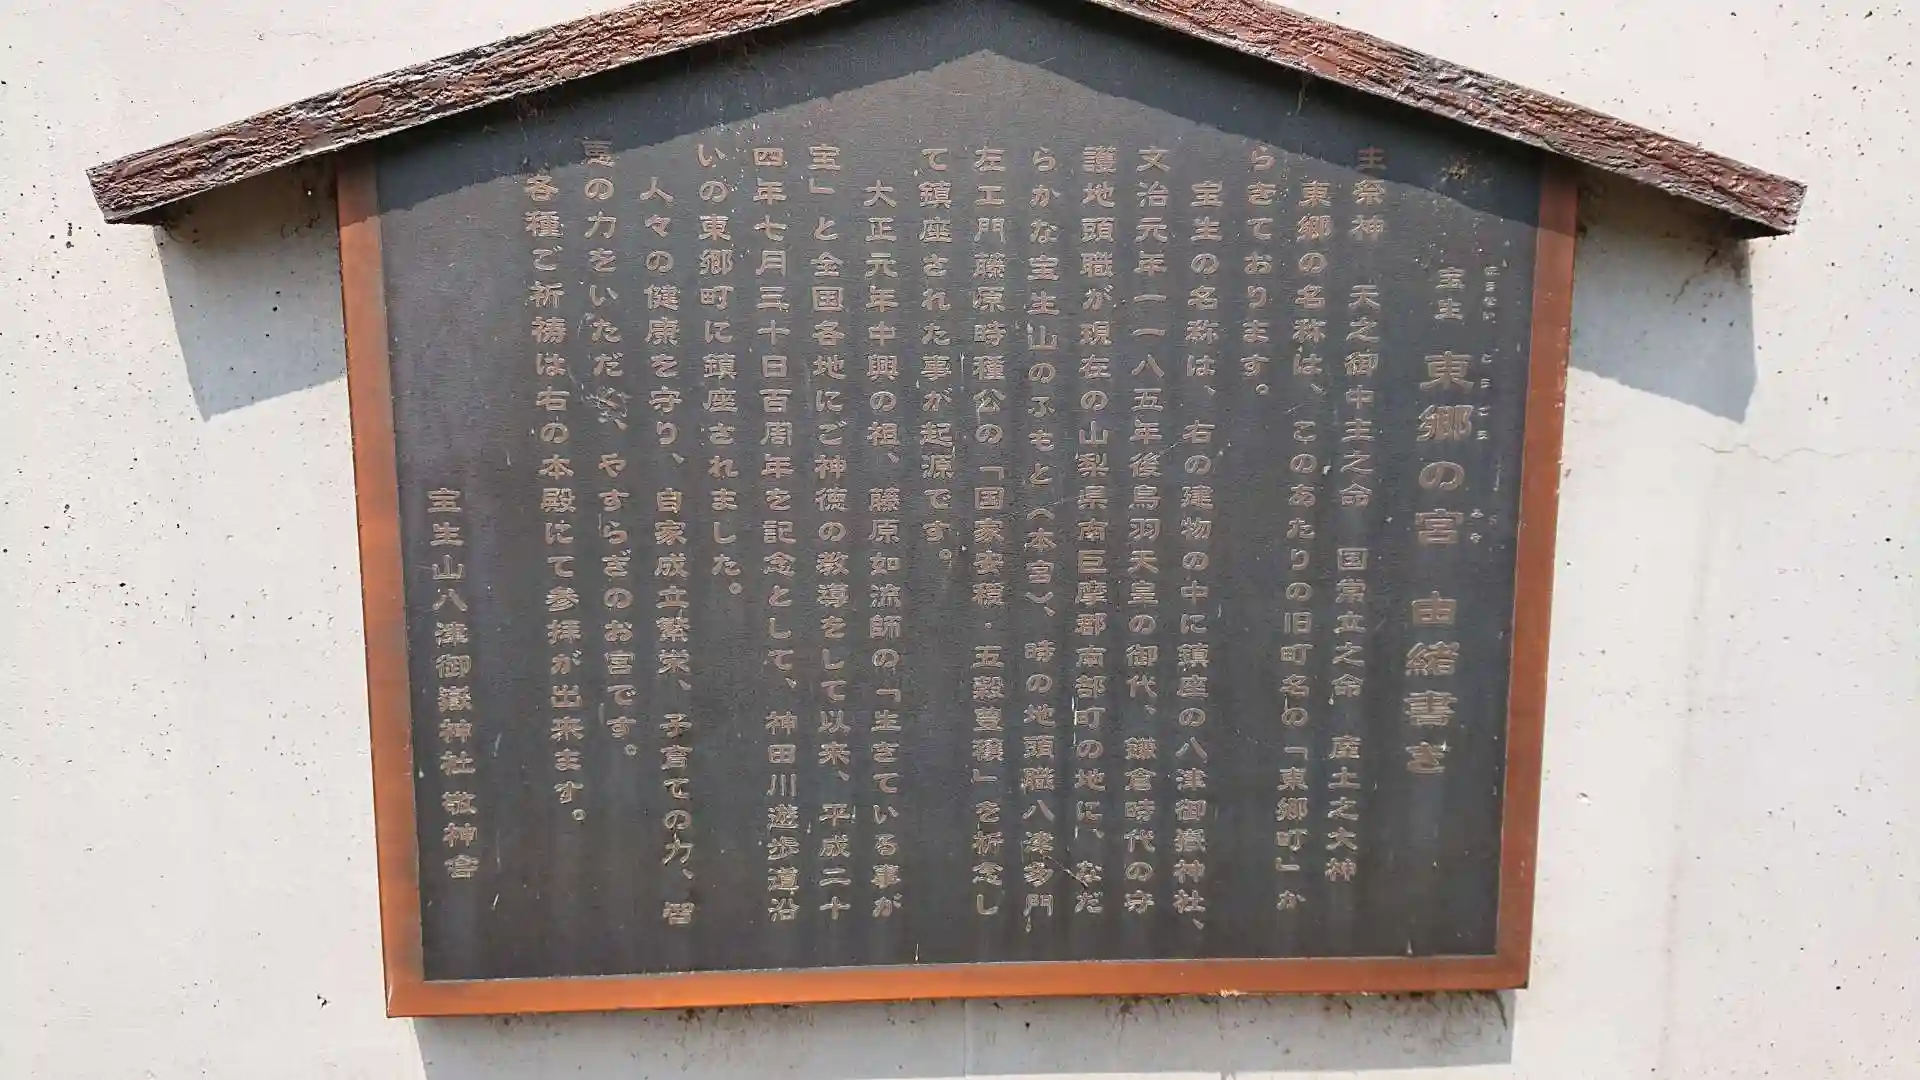 宝生 東郷の宮 由緒書き
主祭神 天之御中主之命 国常立之命 産土之大神
東郷の名称は、このあたりの旧町名の「東郷町」か
らきております。
宝生の名称は、右の建物の中に鎮座の八津御嶽神社、
文治元年一一八五年後鳥羽天皇の御代、鎌倉時代の守
護地頭職が現在の山梨県南巨摩郡南部町の地に、なだ
らかな宝生山のふもと(本宮)、時の地頭職八津多門
左エ門藤原時種公の「国家安穏・五穀豊穣」を祈念し
て鎮座された事が起源です。
大正元年中興の祖、藤原如流師の「生きている事が
宝」と全国各地にご神徳の教導をして以来、平成二十
四年七月三十日百周年を記念として、神田川遊歩道沿
いの東郷町に鎮座されました。
人々の健康を守り、自家成立繁栄、子育ての力、智
恵の力をいただく、やすらぎのお宮です。
各種ご祈祷は右の本殿にて参拝が出来ます。
宝生山八津御嶽神社 敬神会